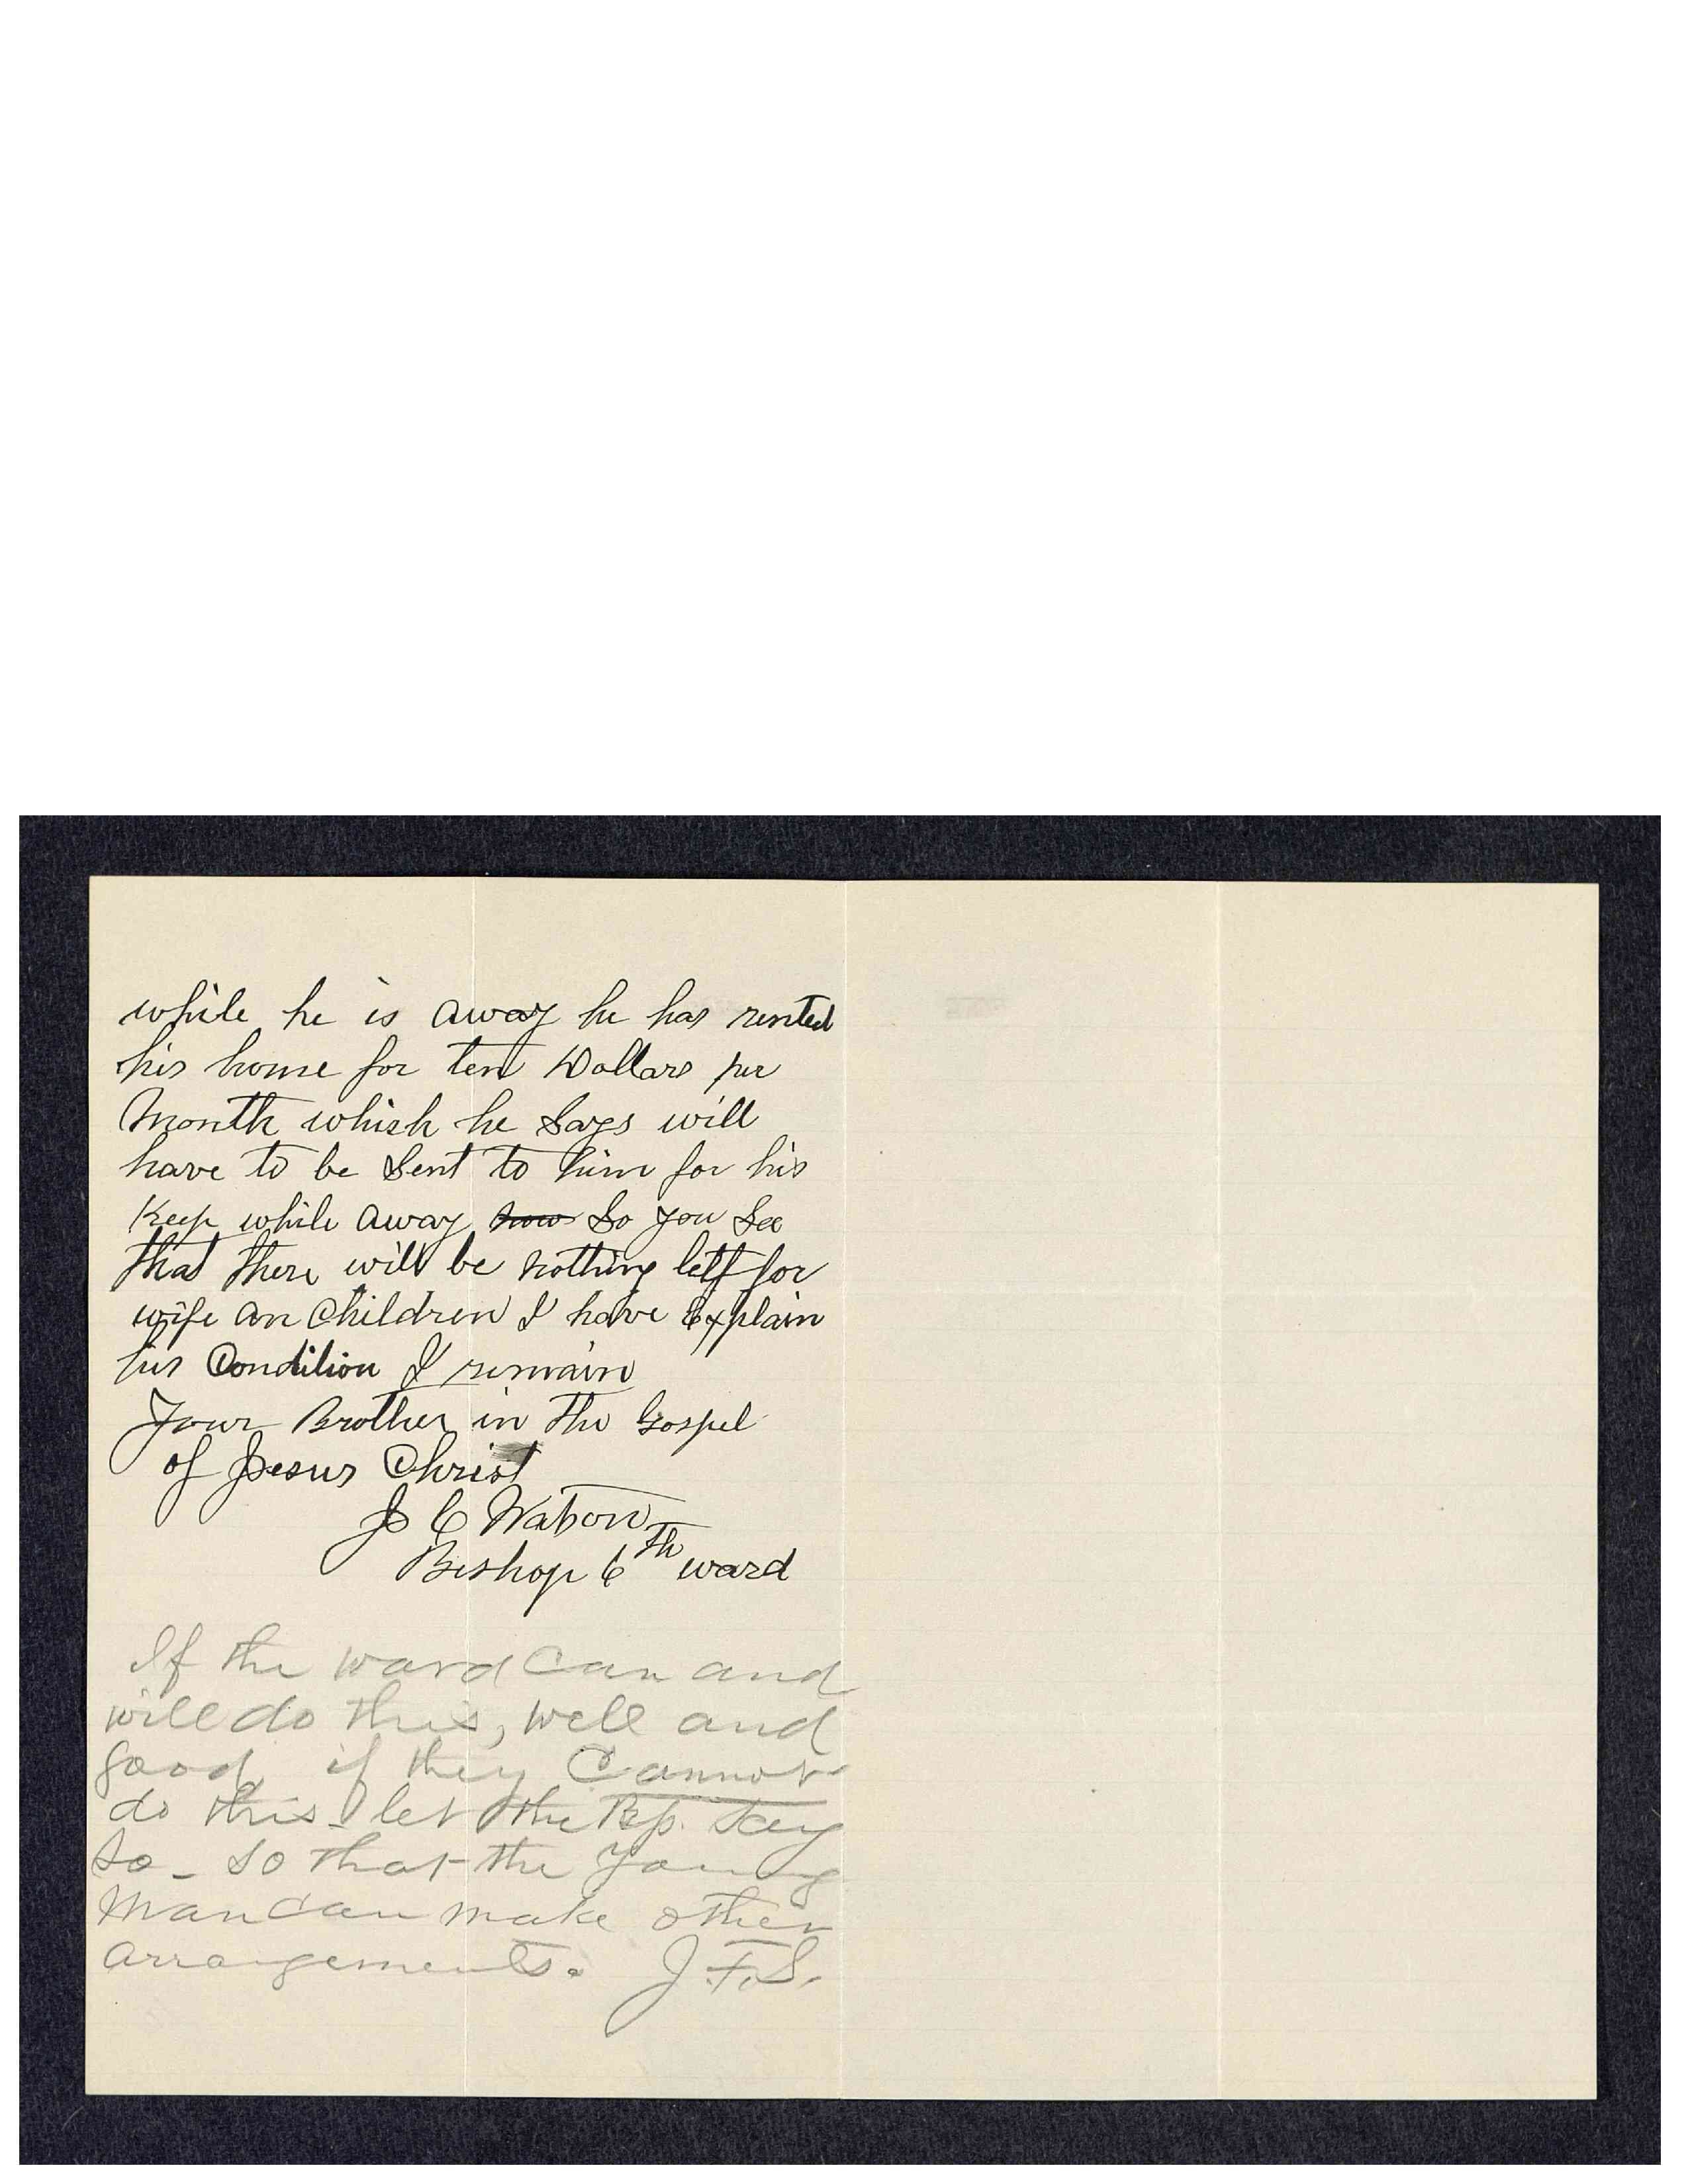 while he is away he has rented
his home for ten Dollars per
Month which he Says will
have to be Sent to him for his
Keep while away now So you See
that there will be nothing left for
wife an Children I have Explain
his Condition I remain
Your Brother in the Gospel
of Jesus Christ
J C Watson
Bishop 6th ward
If the ward can and
will do this, well and
good, if they cannot
do this let the Bp. say
so - so that the young
man can make other
arrangements. J.F.S.